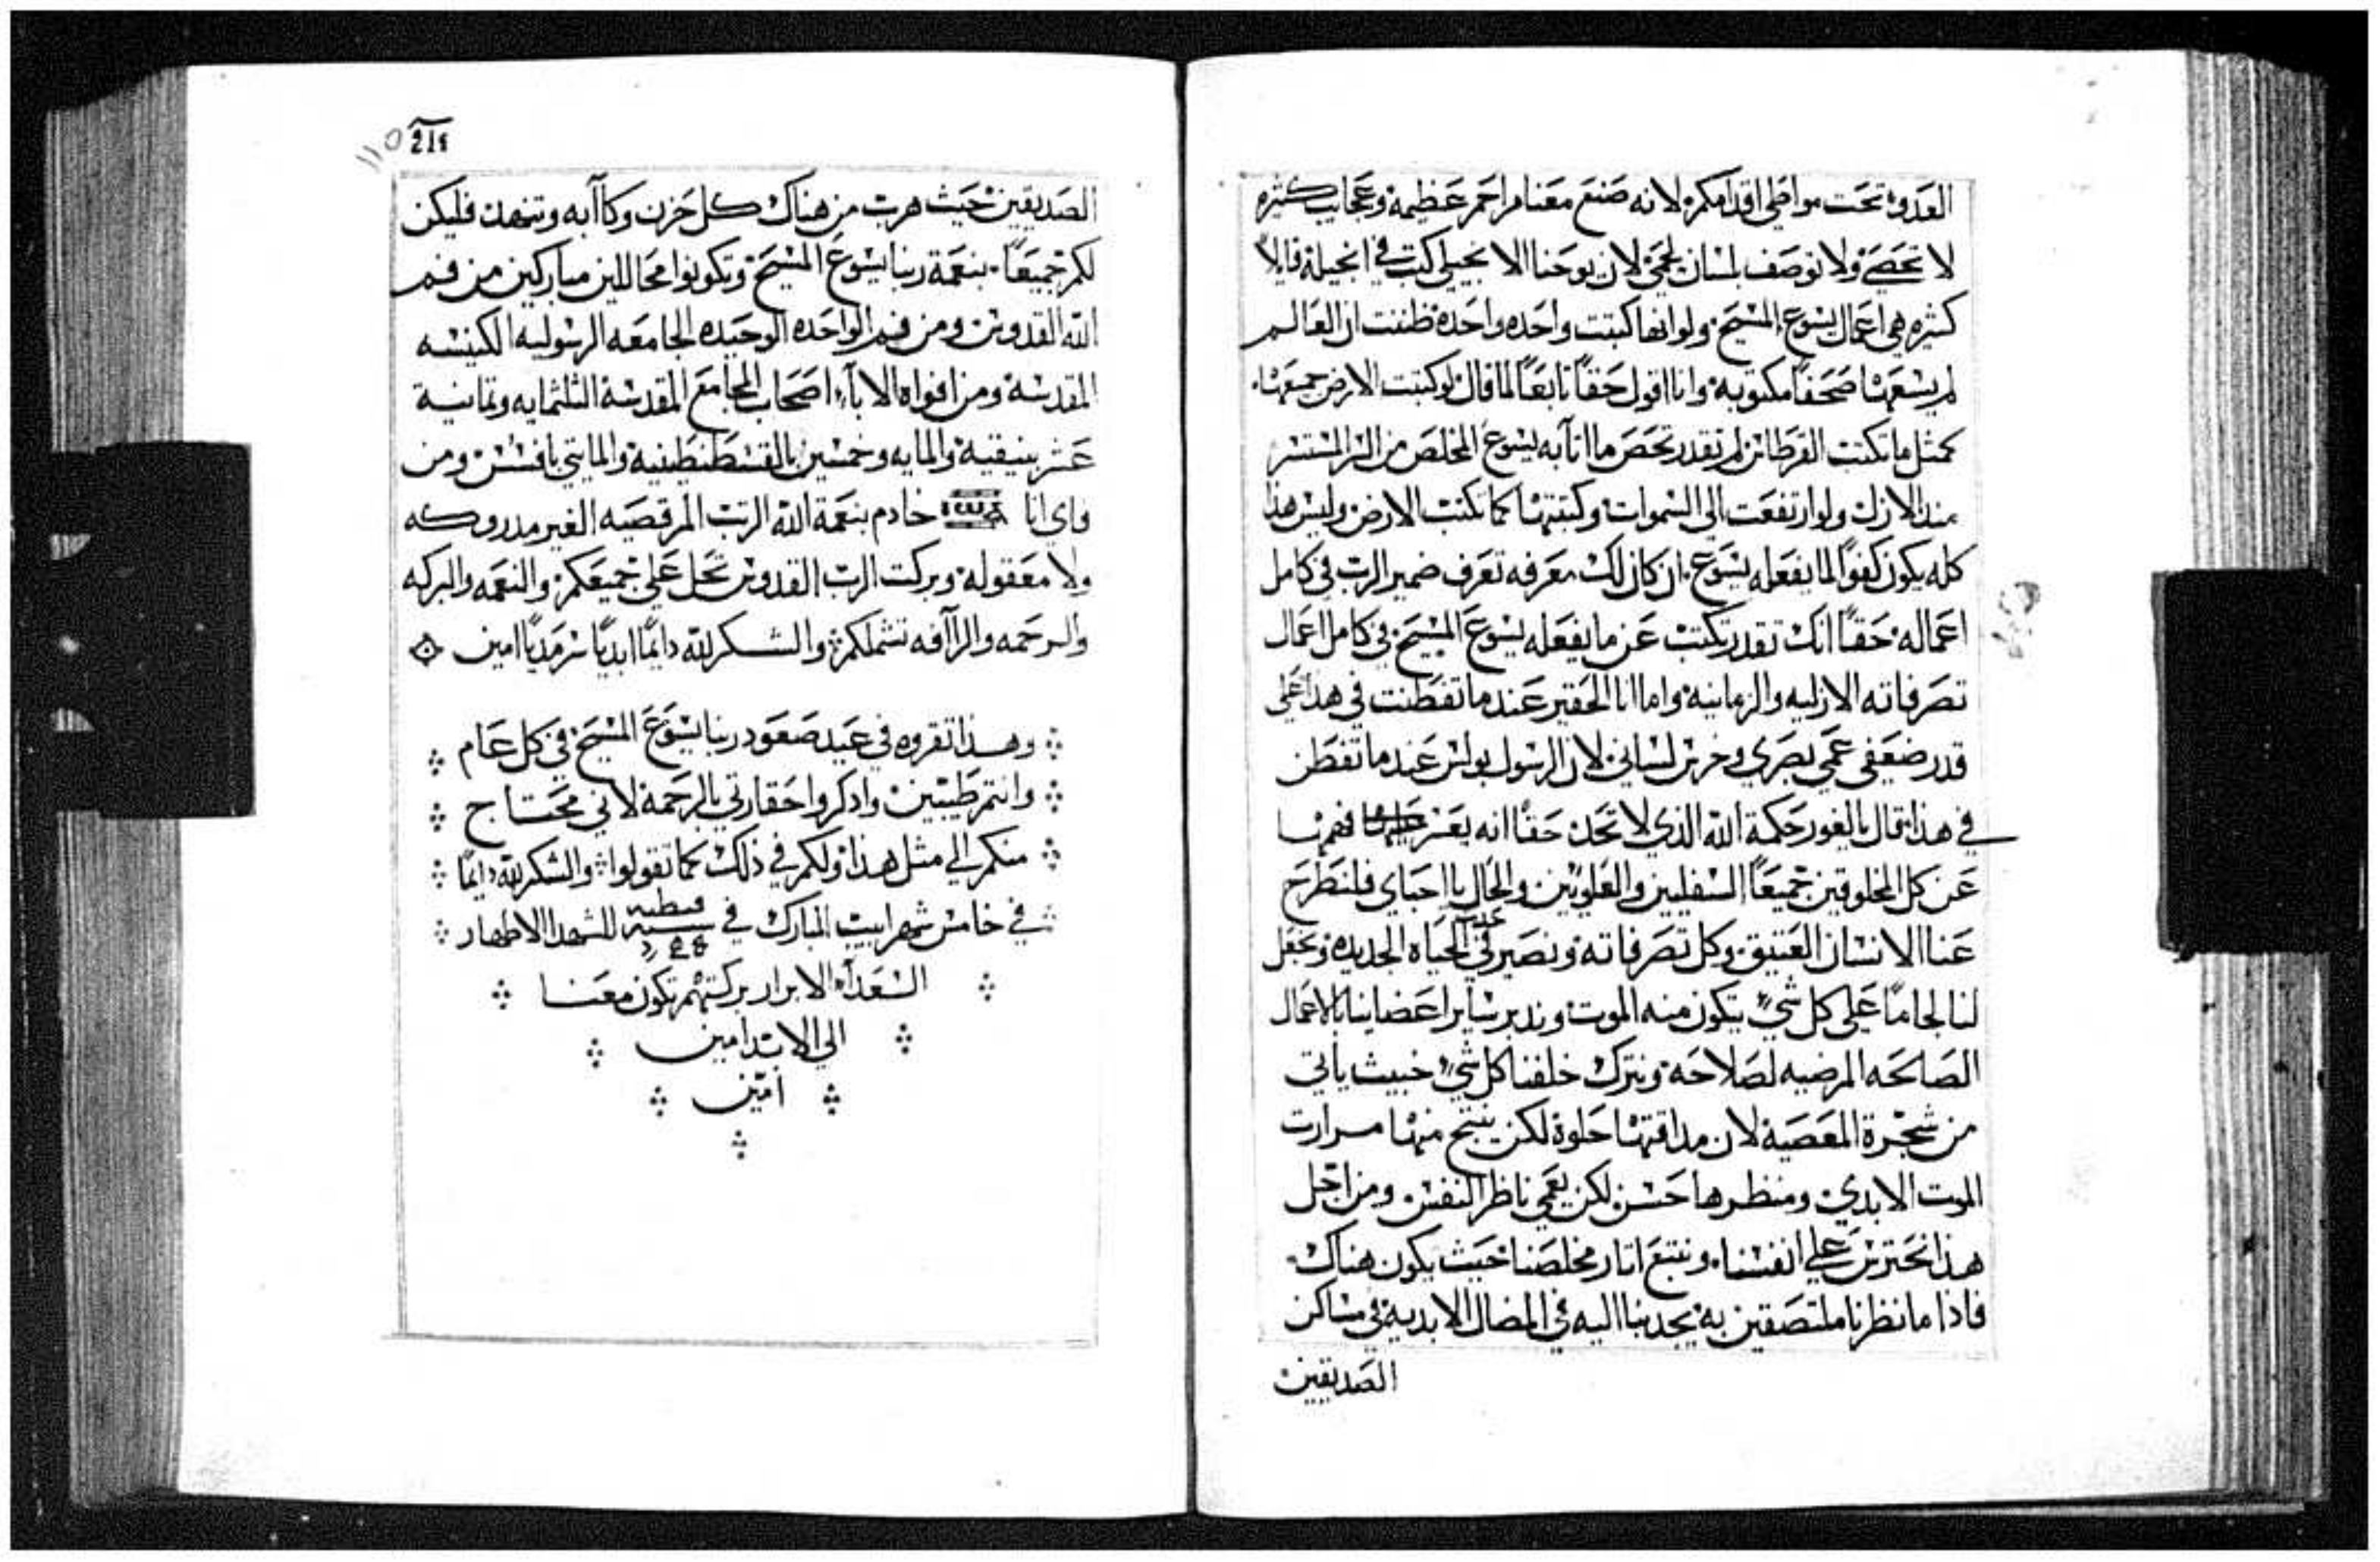 العدو تحت مواطي اقدامكم لانه صنع معنا مراحم عظيمة وعجايب كثيره
لا تحصى ولا توصف بلسان لحمي لان يوحنا الانجيلي كتب في انجيله قايلاً
كثيره هي اعمال يسوع المسيح ولو انها كتبت واحده واحدة ظننت ان العالم
لم يسعها صحفاً مكتوبه وانا اقول حقاً تابعاً لما قال لو كتبت الارض جميعها
كمثل ما تكتب القرطاس لم تقدر تحصى ما اتا به يسوع المخلص من السر المستتر
منذ الازل ولو ارتفعت الى السموات وكتبتها كما تكتب الارض وليس هذا
كله يكون كفواً لما يفعله يسوع ان كان لك معرفه تعرف ضمير الرب في كامل
اعماله حقاً انك تقدر تكتب عن ما يفعله يسوع المسيح في كامل اعمال
تصرفاته الازليه والزمانيه واما انا الحقير عندما تفطنت في هذا على
قدر ضعفي عمي بصري وخرس لساني لان الرسول بولس عندما تفطن
في هذا قال يا لغور حكمة الله الذي لا تحد حقاً انه يعسر فهمها
عن كل المخلوقين جميعاً السفليين والعلويين والحال يا احباي فلنطرح
عنا الانسان العتيق وكل تصرفاته ونصير في الحياه الجديده ونجعل
لنا لجاماً على كل شي يتكون منه الموت وندبر ساير اعضاينا بالاعمال
الصالحه المرضيه لصلاحه ونترك خلفنا كل شي خبيث ياتي
من شجرة المعصية لان مداقتها حلوة لكن ينتج منها مرارت
الموت الابدي ومنظرها حسن لكن يعمي ناظر النفس ومن اجل
هذا نحترس على انفسنا ونتبع اتار مخلصنا حيث يكون هناك
فاذا ما نظرنا ملتصقين به يجدبنا اليه في المضال الابديه في مساكن
الصديقين
110 214
الصديقين حيث هرب من هناك كل حزن وكاآبه وتنهد فليكن
لكم جميعاً بنعمة ربنا يسوع المسيح وتكونوا محاللين مباركين من فم
الله القدوس ومن فم الواحده الوحيده الجامعه الرسوليه الكنيسه
المقدسة ومن افواه الاباء اصحاب المجامع المقدسة الثلثمايه وثمانية
عشر بنيقية والمايه وخمسين بالقسطنطينية والمايتي بافسس ومن
فاي انا خادم بنعمة الله الرب المرقصيه الغير مدروكه
ولا معقوله وبركت الرب القدوس تحل على جميعكم والنعمه والبركه
والرحمه والرآافه تشملكم والشكر لله دايماً ابدياً سرمدياً امين
وهذا تقروه في عيد صعود ربنا يسوع المسيح في كل عام
وانتم طيبين وادكروا حقارتي بالرحمة لاني محتاج
منكم الي مثل هذا ولكم في ذلك كما تقولوا والشكر لله دايماً
في خامس شهر ابيب المبارك في سنة قبطيه للشهدا الاطهار
السعداء الابرار بركتهم تكون معنا
الي الابد امين
امين